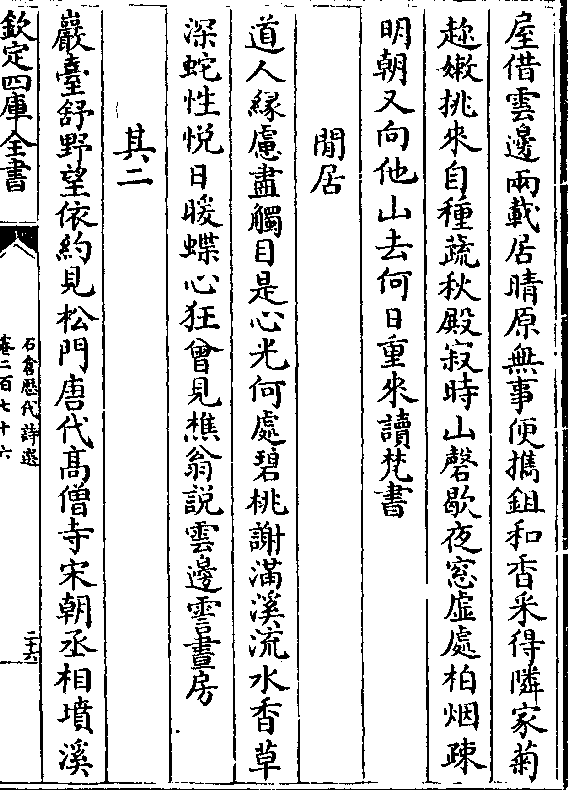 屋借雲邊兩載居晴原無事便攜鉏和香采得隣家菊
趂嫩挑來自種蔬秋殿寂時山磬歇夜窓虛處柏烟疎
明朝又向他山去何日重來讀梵書
閒居
道人緣慮盡觸目是心光何處碧桃謝滿溪流水香草
深蛇性悅日暖蝶心狂曾見樵翁説雲邊霅畫房
其二
巖臺舒野望依約見松門唐代髙僧寺宋朝丞相墳溪
欽定四庫全書
石倉歴代詩選
卷二百七十六
二六